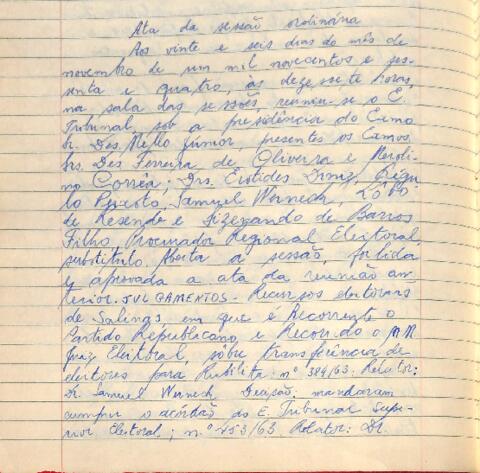 Ata da sessão ordinária
Aos vinte e seis dias do mês de
novembro de um mil novecentos e ses-
senta e quatro, às dezessete horas,
na sala das sessões, reuniu-se o E.
Tribunal, sob a presidência do Exmo
Sr. Des. Mello Júnior, presentes os Exmos.
Srs. Des. Ferreira de Oliveira e Meroli-
no Corrêa; Drs. Erotides Diniz,
Peixoto, Samuel Werneck, Lôbo
de Resende e Sizenando de Barros
Filho, Procurador Regional Eleitoral,
substituto. Aberta a sessão, foi lida
e aprovada a ata da reunião an-
terior. JULGAMENTOS - Recursos eleitorais
de Salinas, em que é Recorrente o
Partido Republicano, e Recorrido o MM
Juiz Eleitoral, sôbre transferência de
eleitores para Rubelita: nº 384/63. Relator:
Dr. Samuel Werneck Decisão: mandaram
cumprir o acórdão do E. Tribunal Supe-
rior Eleitoral; n.º 453/63 Relator: Dr.